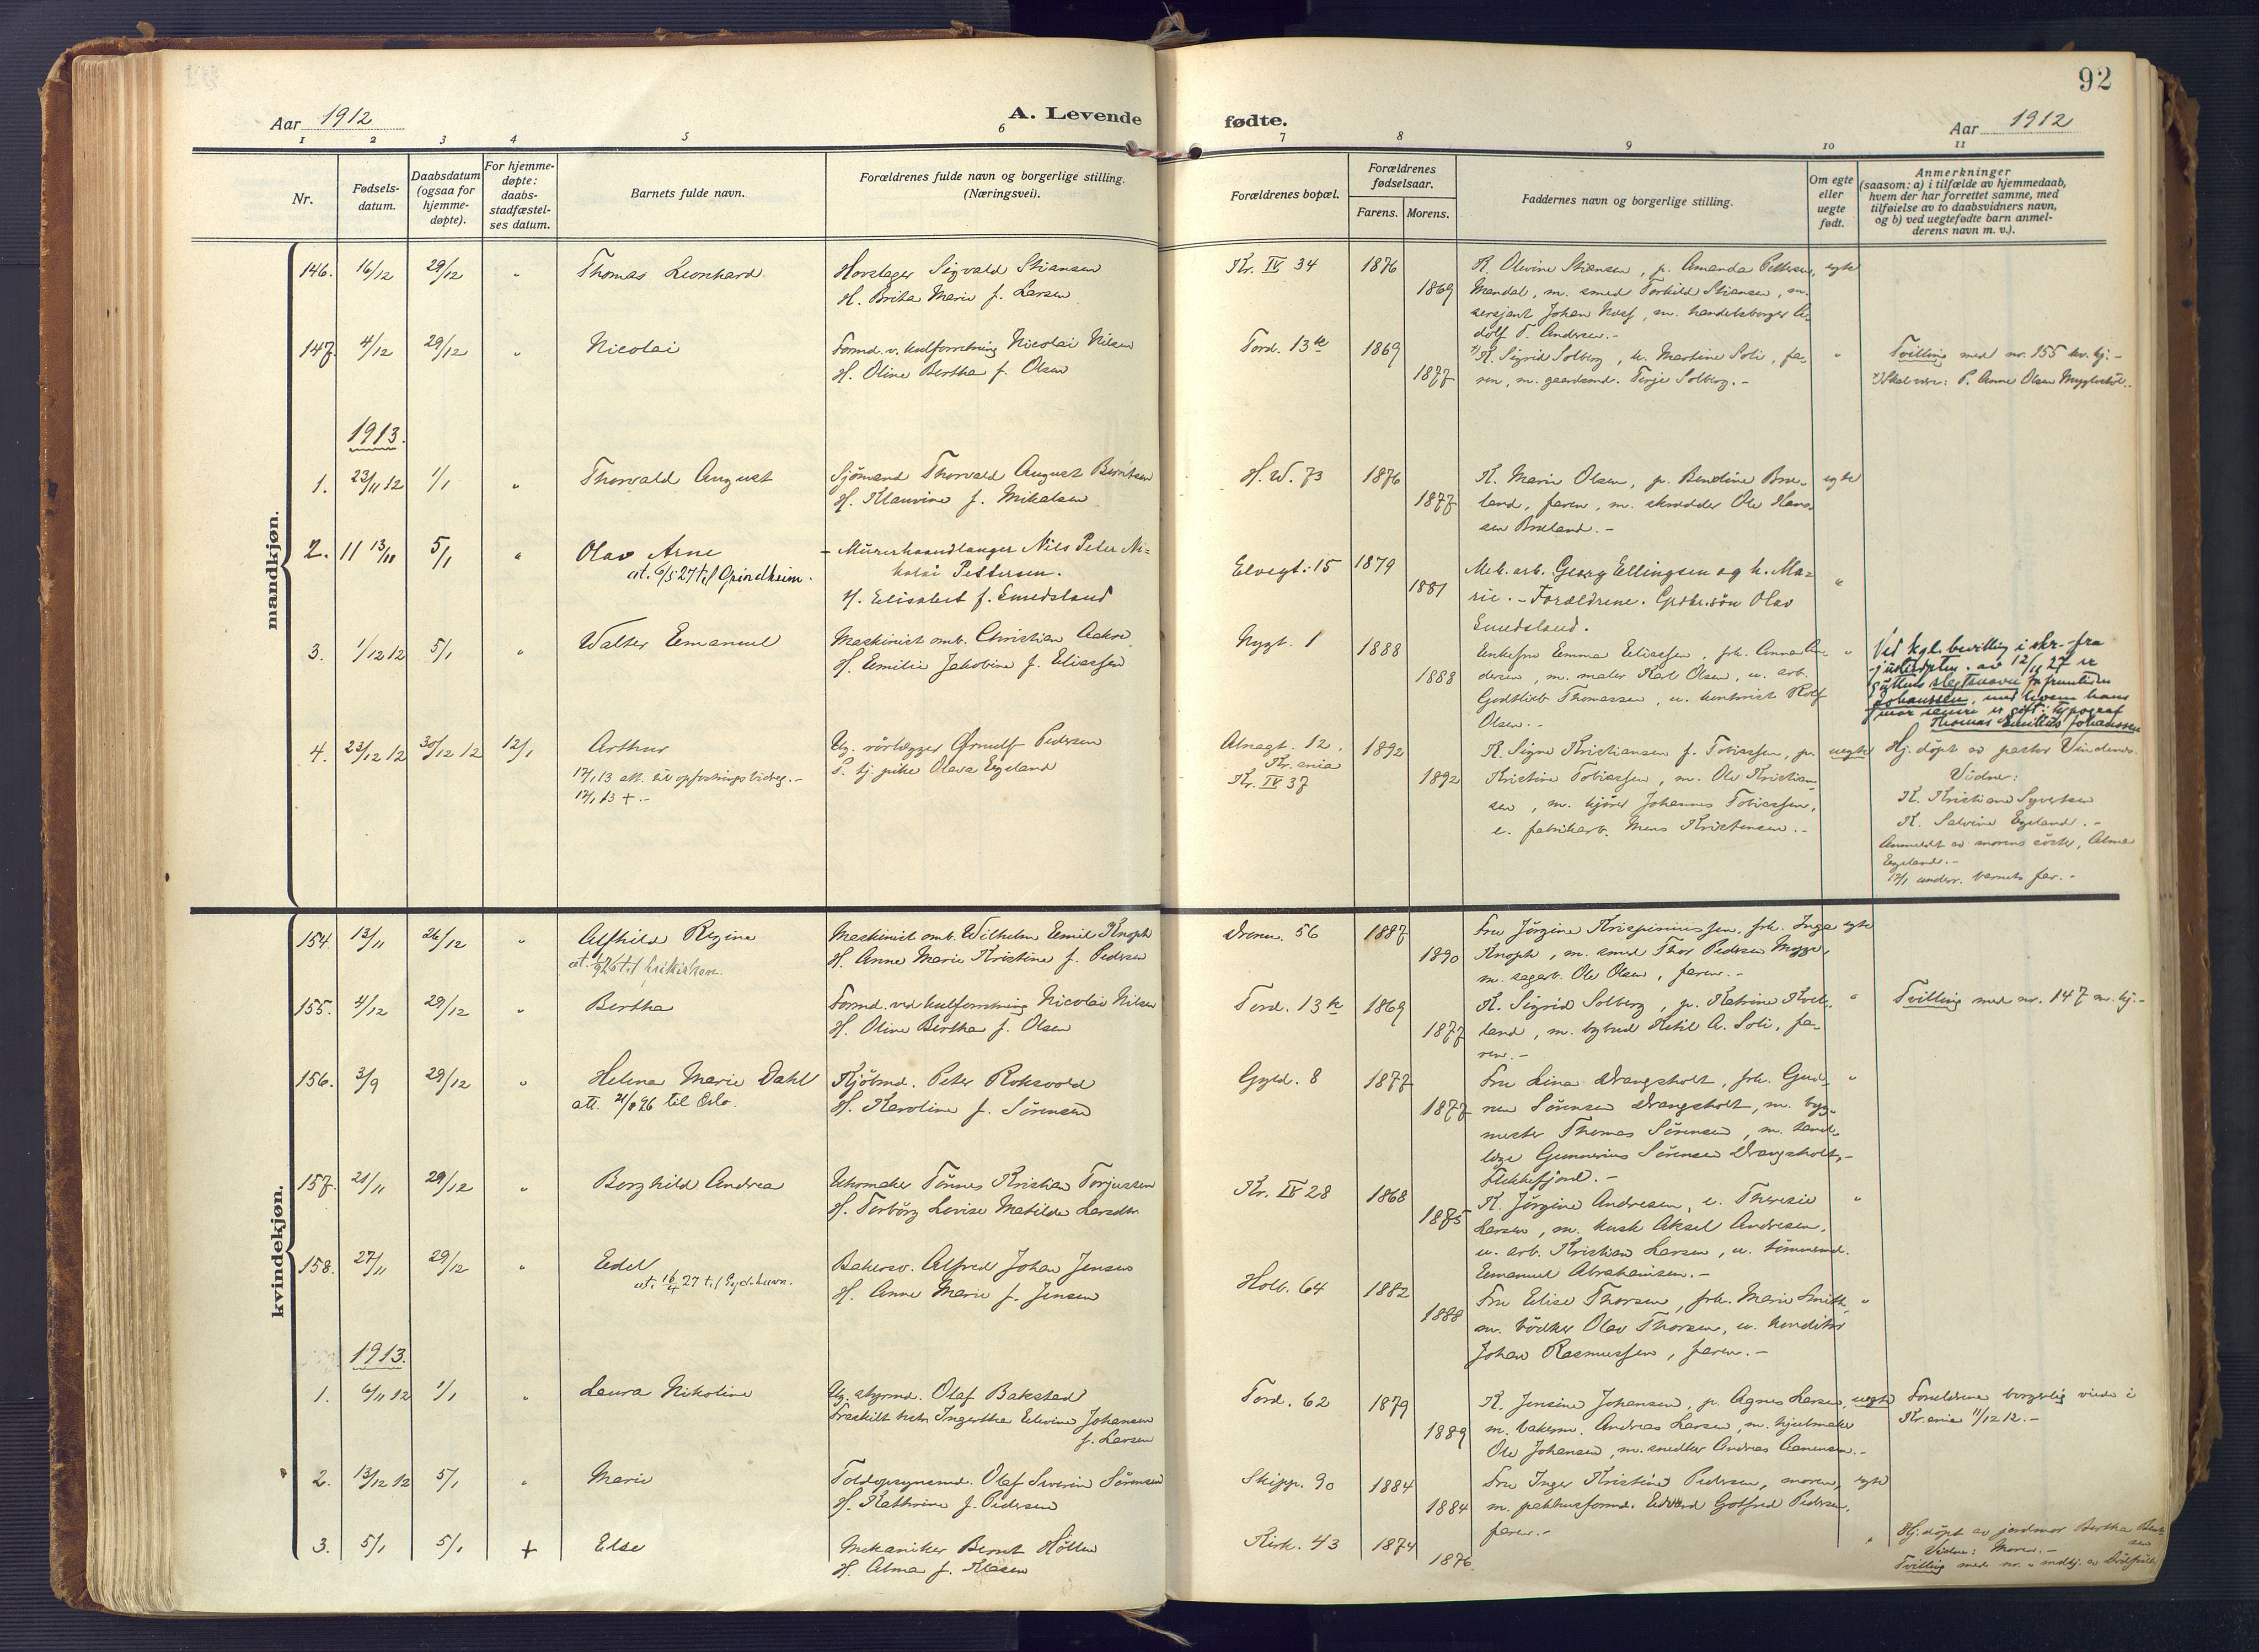 92
Aar 1912
A. Levende
fødte.
Aar 1912
1 2 3 4 5 6 7 8 9 10 11
Nr.
Fødsels-
datum.
Daabsdatum
(ogsaa for
hjemme-
døpte).
For hjemme-
døpte:
daabs-
stadfæstel-
ses datum.
Barnets fulde navn.
Forældrenes fulde navn og borgerlige stilling.
(Næringsvei).
Forældrenes bopæl.
Forældrenes
fødselsaar.
Farens. Morens.
Faddernes navn og borgerlige stilling.
Om egte
eller
uegte
født.
Anmerkninger
(saasom: a) i tilfælde av hjemmedaab,
hvem der har forrettet samme, med
tilføielse av to daabsvidners navn,
og b) ved uegtefødte barn anmel-
derens navn m. v.).
mandkjøn.
146. 16/12 29/12 " Thomas Leonhard
Sigvald Stiansen
H. Brita Marie f. Larsen
Kr. IV 34 1876
1869
K. Olevine Stiansen, p. Amanda Pettersen, egte
Mandal, m. smed Torkild Stiansen, m.
sersjant Johan, m. handelsborger A-
dolf T. Andersen.-
147. 4/12 29/12 " Nicolai
Formd. v. kulforretning Nicolai Nilsen
H. Oline Bertha f. Olsen
Tord. 13 1869
1877
K. Sigrid Solberg, k. Martine Soli, fa-
ren, m. gaardmd. Terje Solberg.-
" Tvilling med nr. 155 kv. kj.-
Skal være: P. Anne Olsen
1913.
1. 23/11 12 1/1 " Thorvald August
Sjømand Thorvald August Berntsen
H. Klaurine f. Mikalsen
H. W. 73 1876
1877
K. Marie Olsen, p. Bendine Bre-
land, faren, m. skrædder Ole Hans-
sen Breland.-
egte
2. 11 13/11 5/1 " Olav Arne
at. 6/5 27 til Grindheim.
- Murerhaandlanger Nils Peter Ni-
kolai Pettersen.
H. Elisabet f. Smedsland
Elvegt. 15 1879
1881
Mek. arb. Georg Ellingsen og h. Ma-
rie.- Forældrene. Grdbr.søn Olav
Smedsland.
"
3. 1/12 12 5/1 " Walter Emanuel
Maskinist omb. Christian Aakre
H. Emilie Jakobine f. Eliassen
Nygt. 1 1888
1888
Enkefru Emma Eliassen, frk. Anna An-
dersen, m. maler Karl Olsen, u. arb.
Godtlieb Thomassen, u. kontorist Rolf
Olsen.-
" Ved kgl. bevilling i skr. fra
justisdptm. av 12/11 27 er
guttens slegtsnavn for fremtiden
Johanssen, med hvem hans
mor senere er gift: typograf
Thomas Emilius Johanssen
4. 23/12 12 30/12 12 12/1 Arthur
17/1 13 att. til opfostringsbidrag.-
17/1 13 +.-
Ug. rørlægger Ørnulf Pedersen
P. tj. pike Olava Egeland
Almagt. 12,
Kr.ania
Kr. IV 37
1892
1892
K. Signe Kristiansen f. Tobiassen, p.
Kristine Tobiassen, m. Ole Kristian-
sen, m. kjører Johannes Tobiassen,
u. fabrikarb. Mons Kristensen.-
uegte Hj. døpt av pastor Vindenes.
Vidner:
K. Kristiane Syvertsen
K. Salvine Egeland.-
Anmeldt av morens søster, Alma
Egeland.-
12/1 underr. barnets far.-
kvindekjøn.
154. 13/11 26/12 " Alfhild Regine
Maskinist omb. Wilhelm Emil Knoph
H. Anne Marie Kristine f. Pedersen
Dronn. 56 1887
1890
Fru Jørgine Krispiniussen, frk. Inga egte
Knoph, m. smed Thor Pedersen Mygge,
m. sagarb. Ole Olsen, faren.-
155. 4/12 29/12 " Bertha
Formd. ved kulforretning Nicolai Nilsen
H. Oline Bertha f. Olsen
Tord. 13 1869
1877
K. Sigrid Solberg, p. Katrine Kvele-
land, m. bybud Ketil A. Soli, fa-
ren.-
" Tvilling med nr. 147 m. kj.-
156. 3/9 29/12 " Helene Marie Dahl
att. 21/8 26 til Oslo.
Kjøbmd. Peter Roksvold
H. Karoline f. Sørensen
Gyld. 8 1877
1877
Fru Lina Drangsholt, frk. Gud-
run Sørensen Drangsholt, m. byg-
mester Thomas Sørensen, m. tand-
læge Gunnerius Sørensen Drangsholt,-
Flekkefjord.-
"
157. 21/11 29/12 " Borghild Andrea
Uhrmaker Tønnes Kristian Torjussen
H. Torborg Lovise Matilde Larsdtr.
Kr. IV 28 1868
1875
K. Jørgine Andresen, e. Theresie
Larsen, m. kusk Aksel Andresen,
u. arb. Kristian Larsen, u. tømmermd.
Emanuel Abrahamsen.-
"
158. 27/11 29/12 " Edel
at. 16/4 27 til Sydhavn.
Bakersv. Alfred Johan Jensen
H. Anne Marie f. Jensen
Holb. 64 1882
1888
Fru Elise Thorsen, frk. Marie Smith,
m. bødker Olav Thorsen, u. konditor
Johan Rasmussen, faren.-
"
1913.
1. 6/11 12 1/1 " Laura Nikoline
Ug. styrmd. Olaf Bakstad
Fraskilt hstr. Ingertha Elevine Johansen
f. Larsen
Tord. 62 1879
1889
K. Jensine Johansen, p. Agnes Larsen, uegte
m. bakerm. Andreas Larsen, m. hjulmaker
Ole Johansen, m. snedker Andreas Aanensen.-
Forældrene borgerlig viede i
Kr.ania 11/12 12.-
2. 13/12 12 5/1 " Marie
Toldopsynsmd. Olaf Severin Sørensen
H. Kathrine f. Pedersen
Skipp. 90 1884
1884
Fru Inger Kristine Pedersen, moren, egte
m. pakhusformd. Edvard Gotfred Pedersen,
faren.-
3. 5/1 5/1 + Else
Mekaniker Bernt Holten
H. Alma f. Klasen
Kirk. 43 1874
1876
" Hj. døpt av jordmor Bertha Bent-
sen
Vidne: Moren.-
Tvilling med nr. " mdkj. av Dødfødte